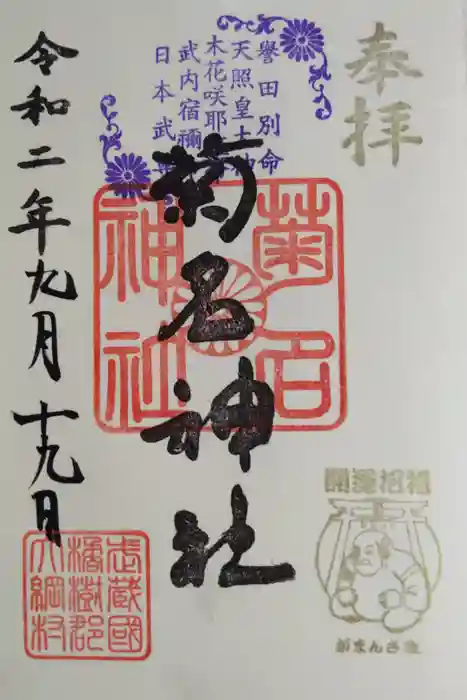 奉拝
譽田別命
天照皇大神
木花咲耶
武内宿禰
日本武
菊名神社
菊名
神社
令和二年九月十九日
開運招福
がまんさま
武蔵國
橘樹郡
大綱村